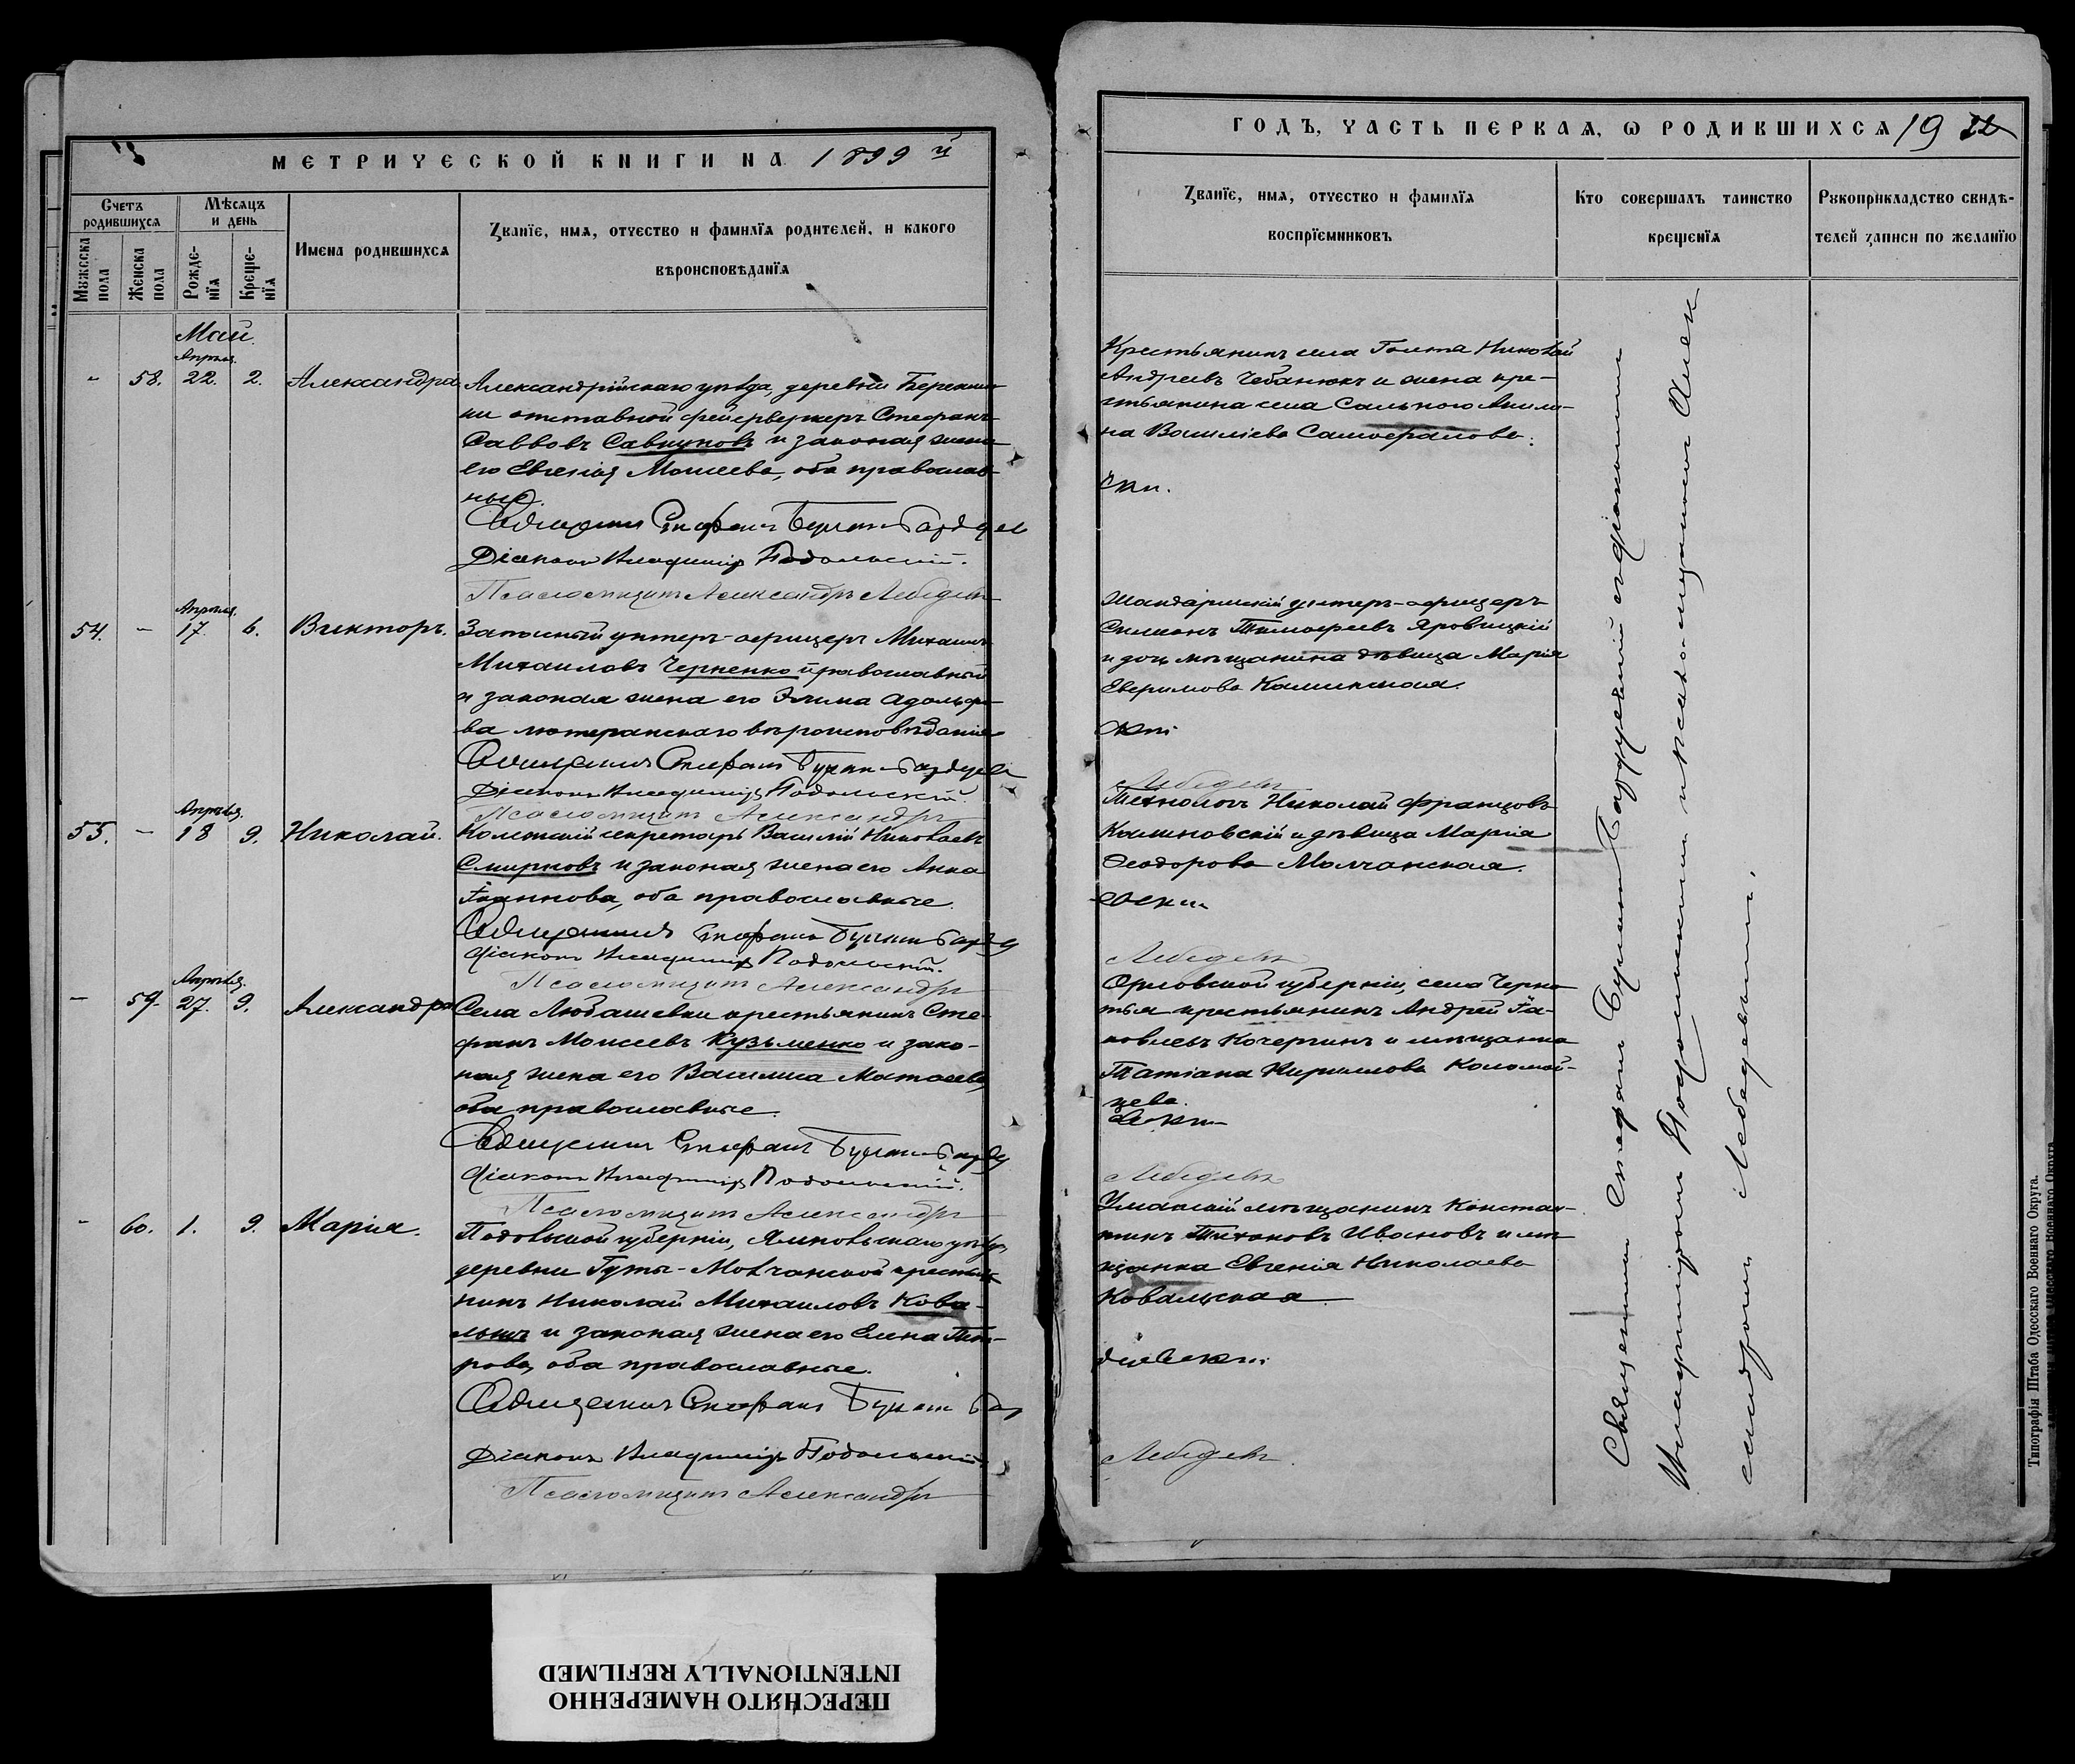 МЕТРИЧЕСКОЙ КНИГИ НА 1899 й
Счетъ родившихся
Мѣсяцъ и день
Мужеска пола
Женска пола
Рожде-нія
Креще-нія
Имена родившихся
Званіе, имя, отчество и фамилія родителей, и какого
вѣроисповѣданія
Май.
Апрѣля.
- 58. 22. 2. Александра
Александрійскаго уѣзда, деревни
ни отставной фейерверкеръ Стефанъ
Саввовъ Савкуновъ и законная жена
его Евгенія Моисеева, оба православ-
ные.
Священникъ Стефанъ
Діаконъ Владиміръ Подольскій.
Псаломщикъ Александръ Лебедевъ
Апрѣля.
54. - 17. 6. Викторъ.
Запасный унтеръ-офицеръ Михаилъ
Михаиловъ Черненко православный
и законная жена его Эмма Адольфо-
ва лютеранскаго вѣроисповѣданія
Священникъ Стефанъ
Діаконъ Владиміръ Подольскій.
Псаломщикъ Александръ
Апрѣля.
55. - 18 9. Николай.
Колежскій секретарь Василій Николаевъ
Смирновъ и законная жена его Анна
Іоаннова, оба православные.
Священникъ Стефанъ
Діаконъ Владиміръ Подольскій.
Псаломщикъ Александръ
Апрѣля.
- 59. 27. 9. Александра
Села Любашевки крестьянинъ Сте-
фанъ Моисеевъ Кузьменко и зако-
ная жена его Василиса Матѳеева,
оба православные.
Священникъ Стефанъ
Діаконъ Владиміръ Подольскій.
Псаломщикъ Александръ
- 60. 1. 9. Марія.
Подольской губерніи, Ямпольскаго уѣзда,
деревни Гуты-Мовчанской крестья-
нинъ Николай Михаиловъ Кова-
льчъ и законная жена его Елена Пет-
рова, оба православные.
Священникъ Стефанъ
Діаконъ Владиміръ Подольскій.
Псаломщикъ Александръ
ГОДЪ, ЧАСТЬ ПЕРВАЯ, Ѡ РОДИВШИХСЯ 19
Званіе, имя, отчество и фамилія
воспріемниковъ
Кто совершалъ таинство
крещенія
Рукоприкладство свидѣ-
телей записи по желанію
Крестьянинъ села Голта Николай
Андреевъ Чебанюкъ и жена кре-
стьянина села Сального Акили-
на Василіева Самофалова.
Жандармскій унтеръ-офицеръ
Симеонъ Тимофеевъ Яровицкій
и дочь мѣщанина дѣвица Марія
Евфимова Каминская.
Лебедевъ
Технологъ Николай Францовъ
Калиновскій и дѣвица Марія
Ѳеодорова Молчанская.
Лебедевъ
Орловской губерніи, села Черно
тья крестьянинъ Андрей Іа-
ковлевъ Кочергинъ и мѣщанка
Татіана Кириллова Коломой-
цева.
Лебедевъ
Уманскій мѣщанинъ Констан-
тинъ Тихоновъ Ивановъ и мѣ-
щанка Евгенія Николаева
Ковальская.
Лебедевъ
Священникъ Стефанъ съ діакономъ
Владиміромъ Подольскимъ и псаломщикомъ Алек
сандромъ Лебедевымъ.
Типографія Штаба Одесскаго Военнаго Округа.
ПЕРЕСНЯТО НАМЕРЕННО
INTENTIONALLY REFILMED